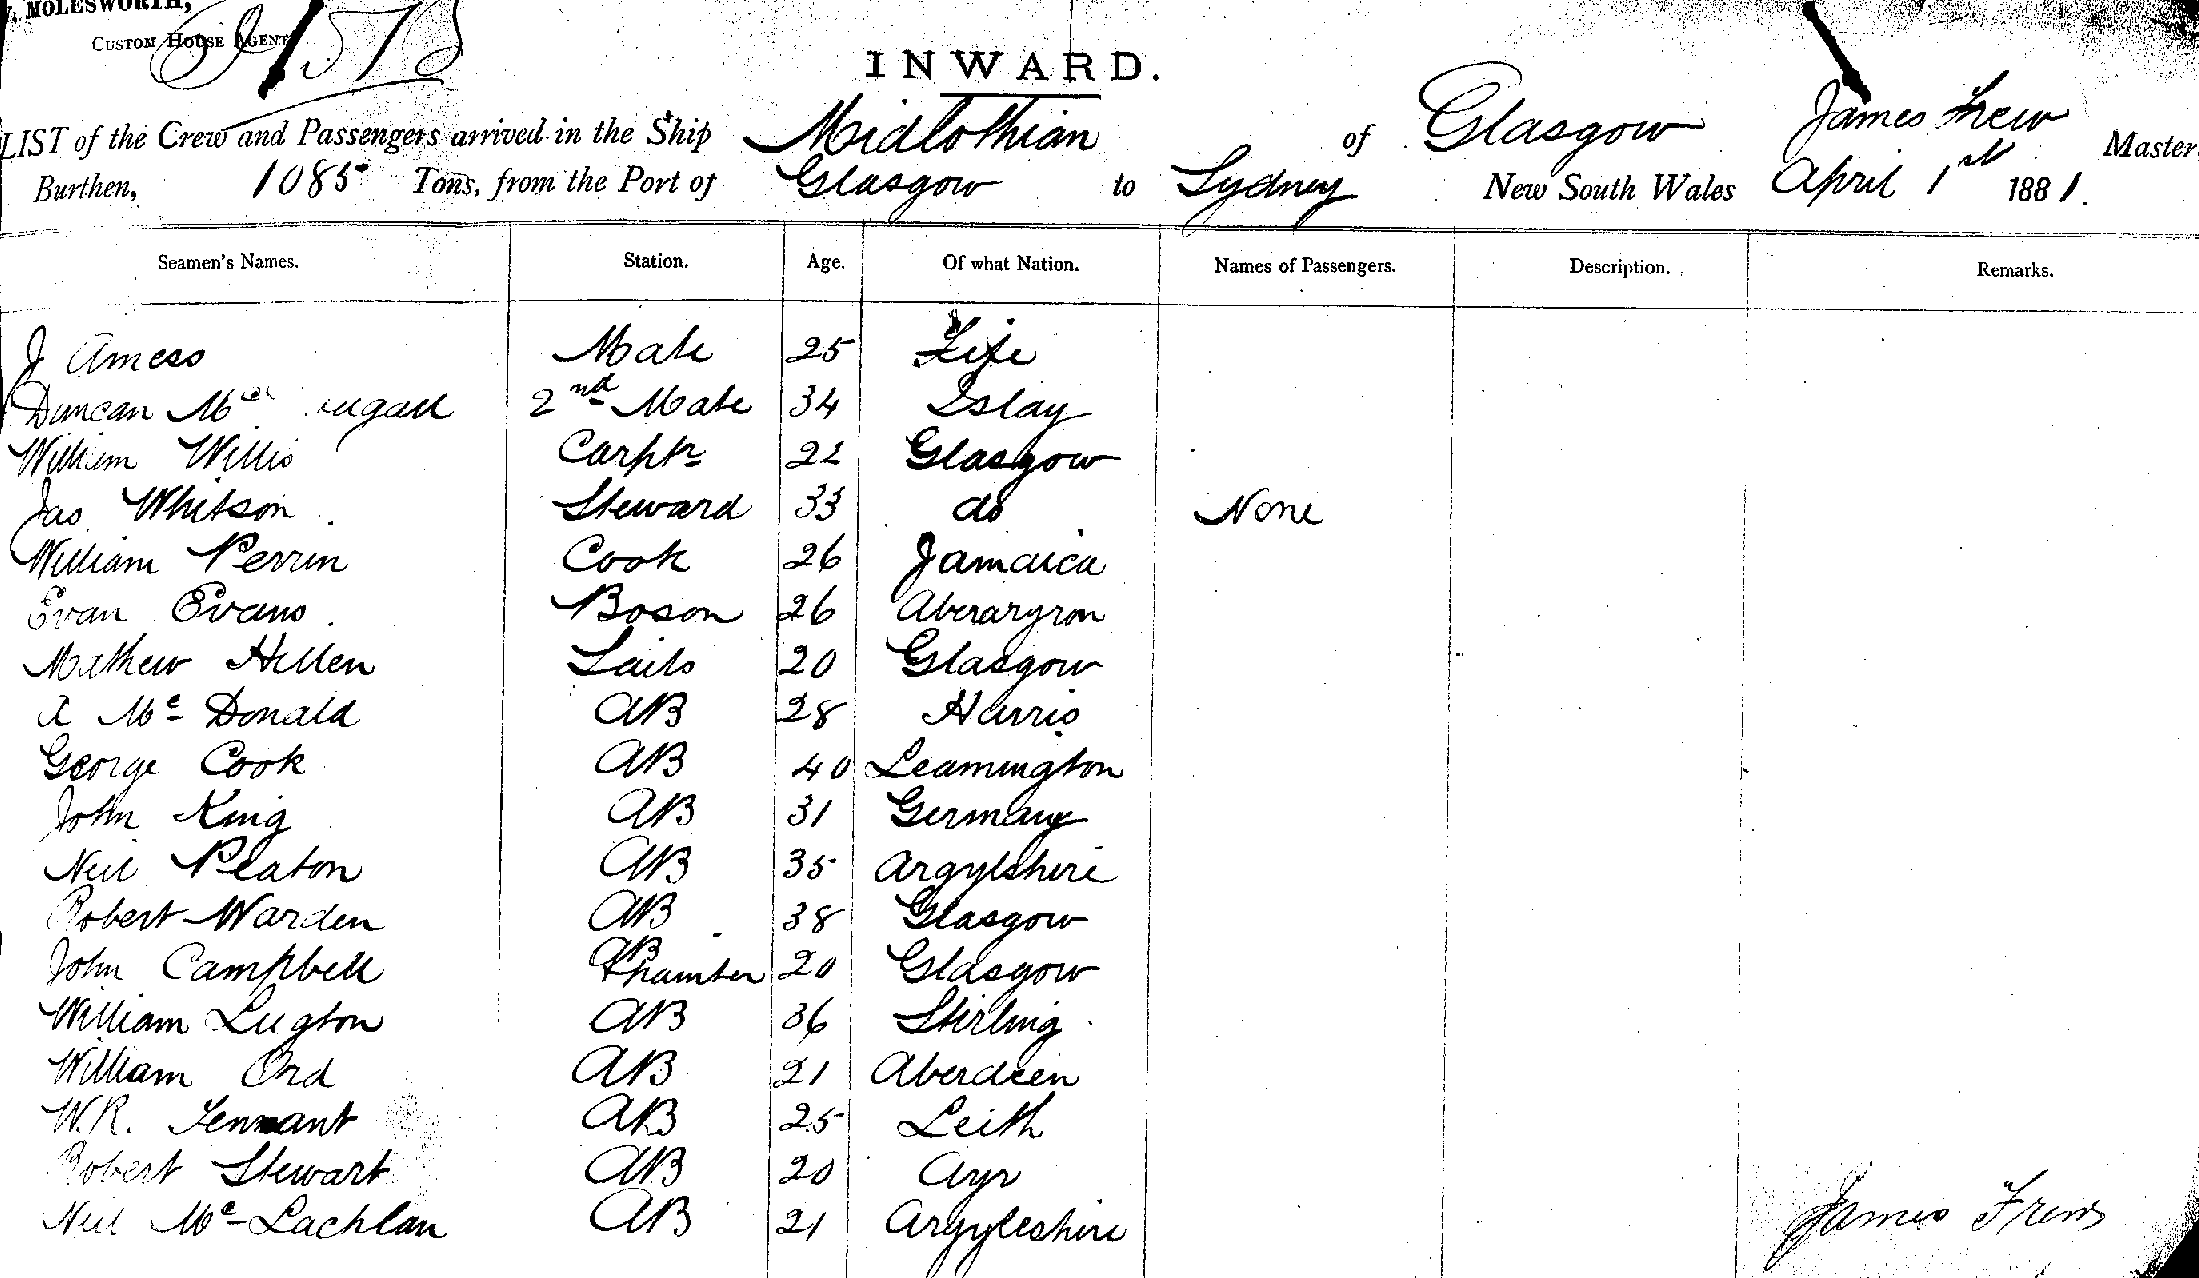 MOLESWORTH,
CUSTOM HOUSE AGENT
INWARD.
LIST of the Crew and Passengers arrived in the Ship Midlothian of Glasgow James Frew Master
Burthen, 1085 Tons, from the Port of Glasgow to Sydney New South Wales April 1st 1881.
Seamen's Names. Station. Age. Of what Nation. Names of Passengers. Description. Remarks.
J Amess Mate 25 Fife
Duncan 2nd Mate 34 Islay
William Willis Carptr 22 Glasgow
Jas Whitson Steward 33 do None
William Perrin Cook 26 Jamaica
Evan Evans Boson 26 Aberaryron
Mathew Hillen Sails 20 Glasgow
A McDonald AB 28 Harris
George Cook AB 40 Leamington
John King AB 31 Germany
Neil Peaton AB 35 Argylshire
Robert Warden AB 38 Glasgow
John Campbell AB 20 Glasgow
William Lugton AB 36 Stirling
William Ord AB 21 Aberdeen
W.R. Tennant AB 25 Leith
Robert Stewart AB 20 Ayr
Neil McLachlan AB 21 Argyleshire
James Frew